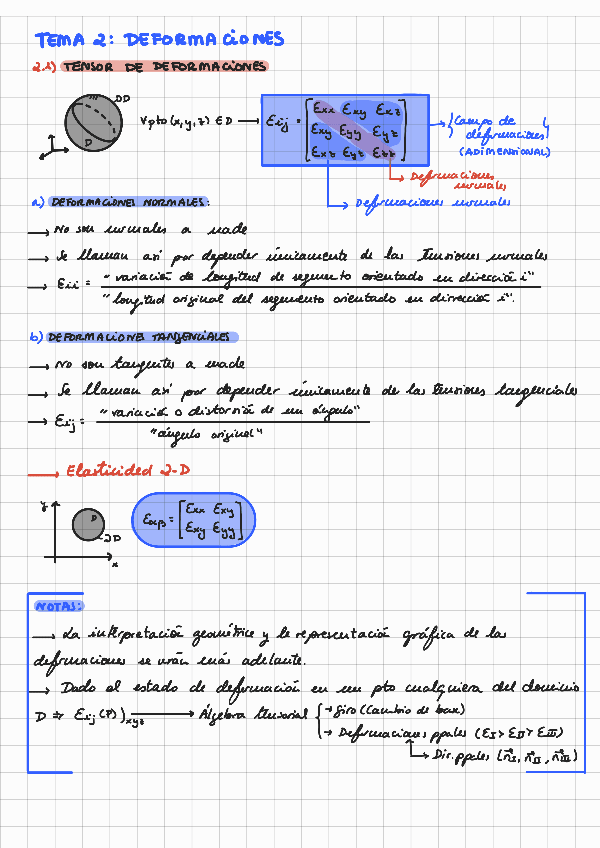 TEMA 2: DEFORMACIONES
2.1) TENSOR DE DEFORMACIONES
∂D
D
∀ pto (x, y, z) ∈ D → Eij = [Exx Exy Exz
Exy Eyy Eyz
Exz Eyz Ezz]
Campo de
deformaciones
(ADIMENSIONAL)
Deformaciones
normales
Deformaciones normales
a) DEFORMACIONES NORMALES:
→ No son normales a nada
→ Se llaman así por depender únicamente de las tensiones normales
→ Eii = "variación de longitud de segmento orientado en dirección i"
"longitud original del segmento orientado en dirección i".
b) DEFORMACIONES TANGENCIALES
→ No son tangentes a nada
→ Se llaman así por depender únicamente de las tensiones tangenciales
→ Eij = "variación o distorsión de un ángulo"
"ángulo original"
→ Elasticidad 2-D
y
D
∂D
x
Eαβ = [Exx Exy
Exy Eyy]
NOTAS:
→ La interpretación geométrica y la representación gráfica de las
deformaciones se verán más adelante.
→ Dado el estado de deformación en un pto cualquiera del dominio
D ⇒ Eij (P))xyz → Álgebra tensorial
→ Giro (Cambio de base)
→ Deformaciones ppales (EI > EII > EIII)
→ Dir. ppales (n⃗I, n⃗II, n⃗III)